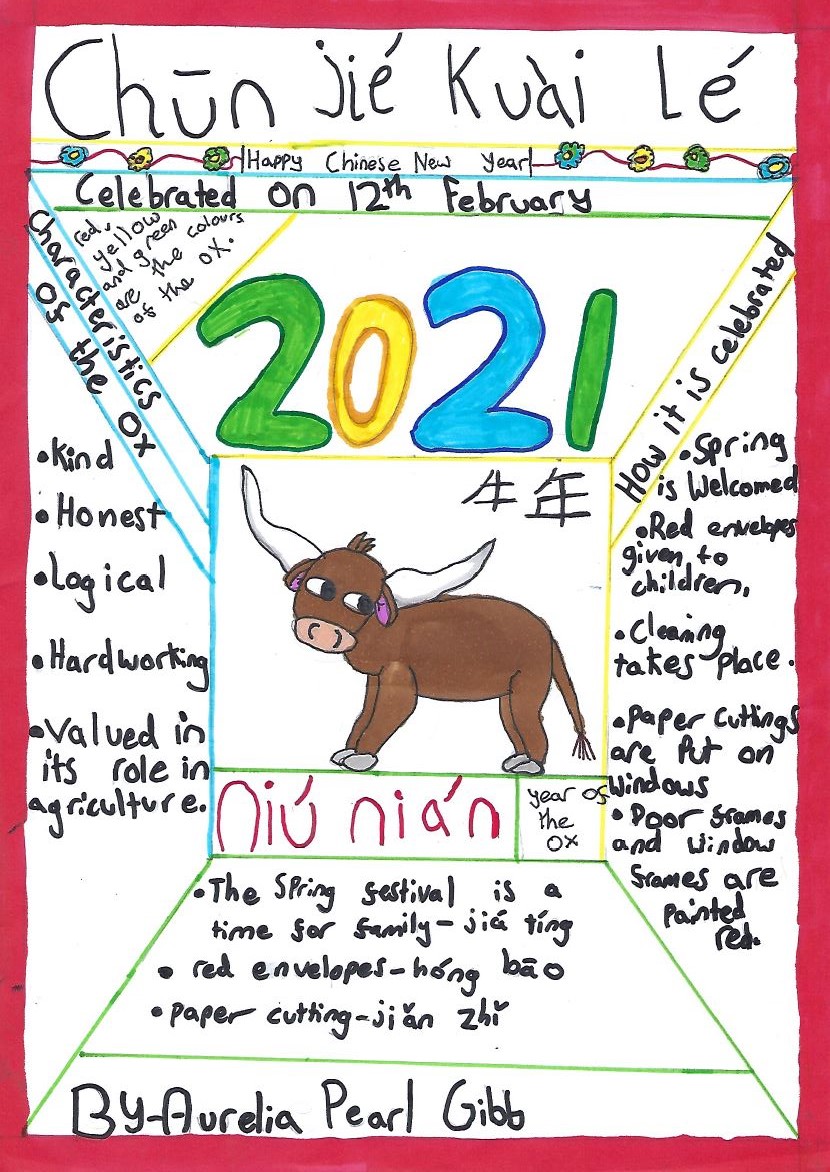 Chūn jié Kuài Lé
Happy Chinese New Year
Celebrated on 12th February
Characteristics
of the Ox
red,
yellow
and green
are the colours
of the ox.
2021
How it is celebrated
牛年
• Kind
• Honest
• Logical
• Hardworking
• Valued in
its role in
agriculture.
• Spring
is Welcomed
• Red envelopes
given to
children.
• Cleaning
takes place.
• Paper cuttings
are put on
windows
• Door frames
and window
frames are
painted
red.
niú nián
year of
the
ox
• The Spring festival is a
time for family - jiā tíng
• red envelopes - hóng bāo
• paper cutting - jiǎn zhǐ
By - Aurelia Pearl Gibb